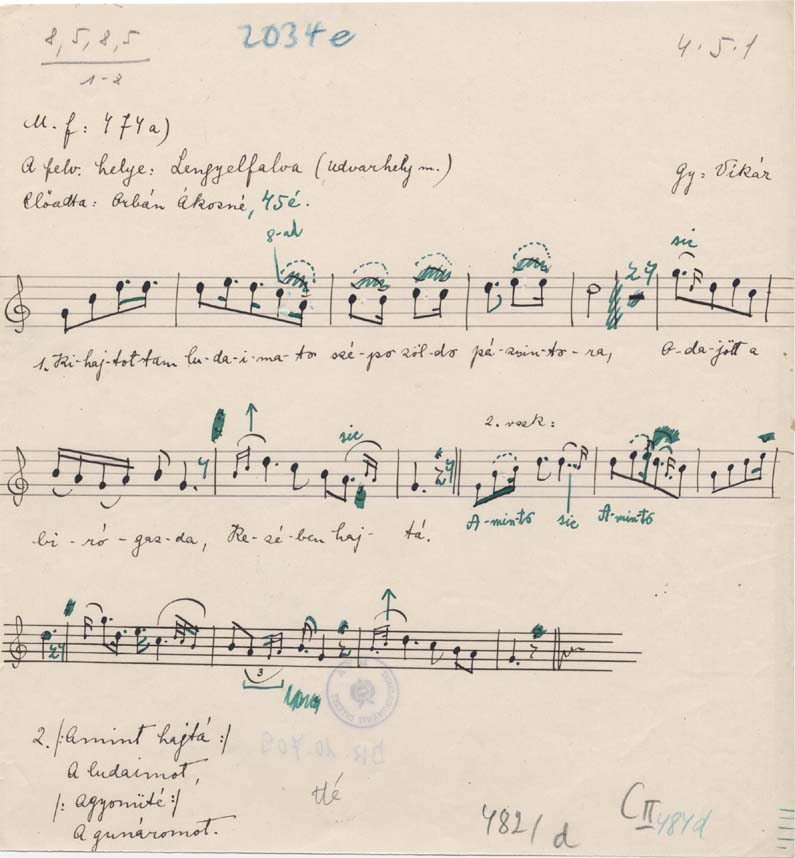 8, 5, 8, 5
1-8
2034e
4.5.1
M. f: 474a)
A felv. helye: Lengyelfalva (Udvarhely m.)
Gy: Vikár
Előadta: Orbán Ákosné, 45é.
8-ad
sic
1. Ki-haj-tot-tam lu-da-i-ma-to szé-po zöl-do pá-zsin-to-ra, O-da-jött a
sic
2. vszk:
A-minto sic A-minto
bi-ró-gaz-da, Ke-zé-ben haj-tá.
3
2. /:Amint hajtá:/
A ludaimot,
/: agyonüté:/
A gunáromot.
482/d
CII 484d